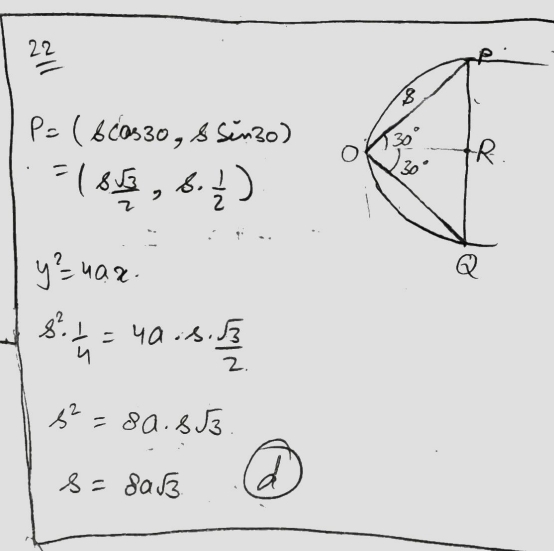 22
P= (s cos30, s Sin30)
= (s√3/2, s. 1/2)
y²=4ax.
s². 1/4 = 4a .s. √3/2.
s² = 8a. s√3.
s = 8a√3
d
P
s
30°
O
R
30°
Q